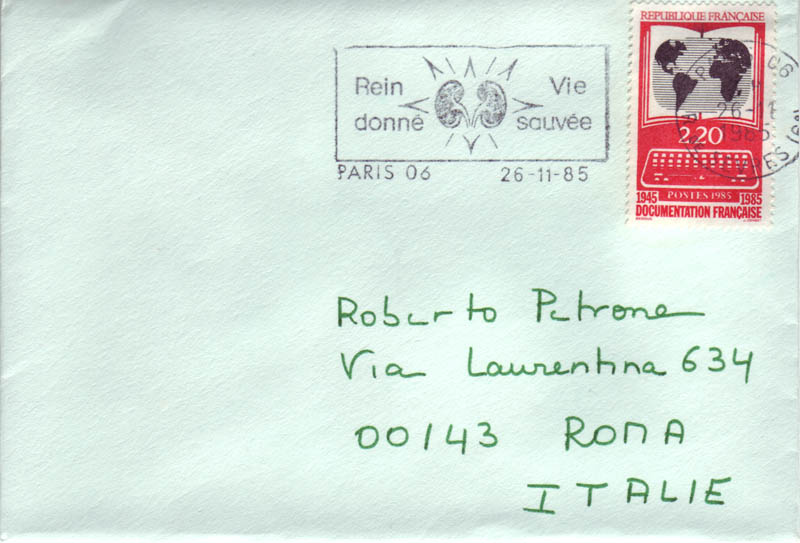 REPUBLIQUE FRANÇAISE
Rein Vie
donné sauvée
PARIS 06 26-11-85
06
26-11
1985
2,20
POSTES 1985
1945 1985
DOCUMENTATION FRANÇAISE
Roberto Petrone
Via Laurentina 634
00143 ROMA
ITALIE